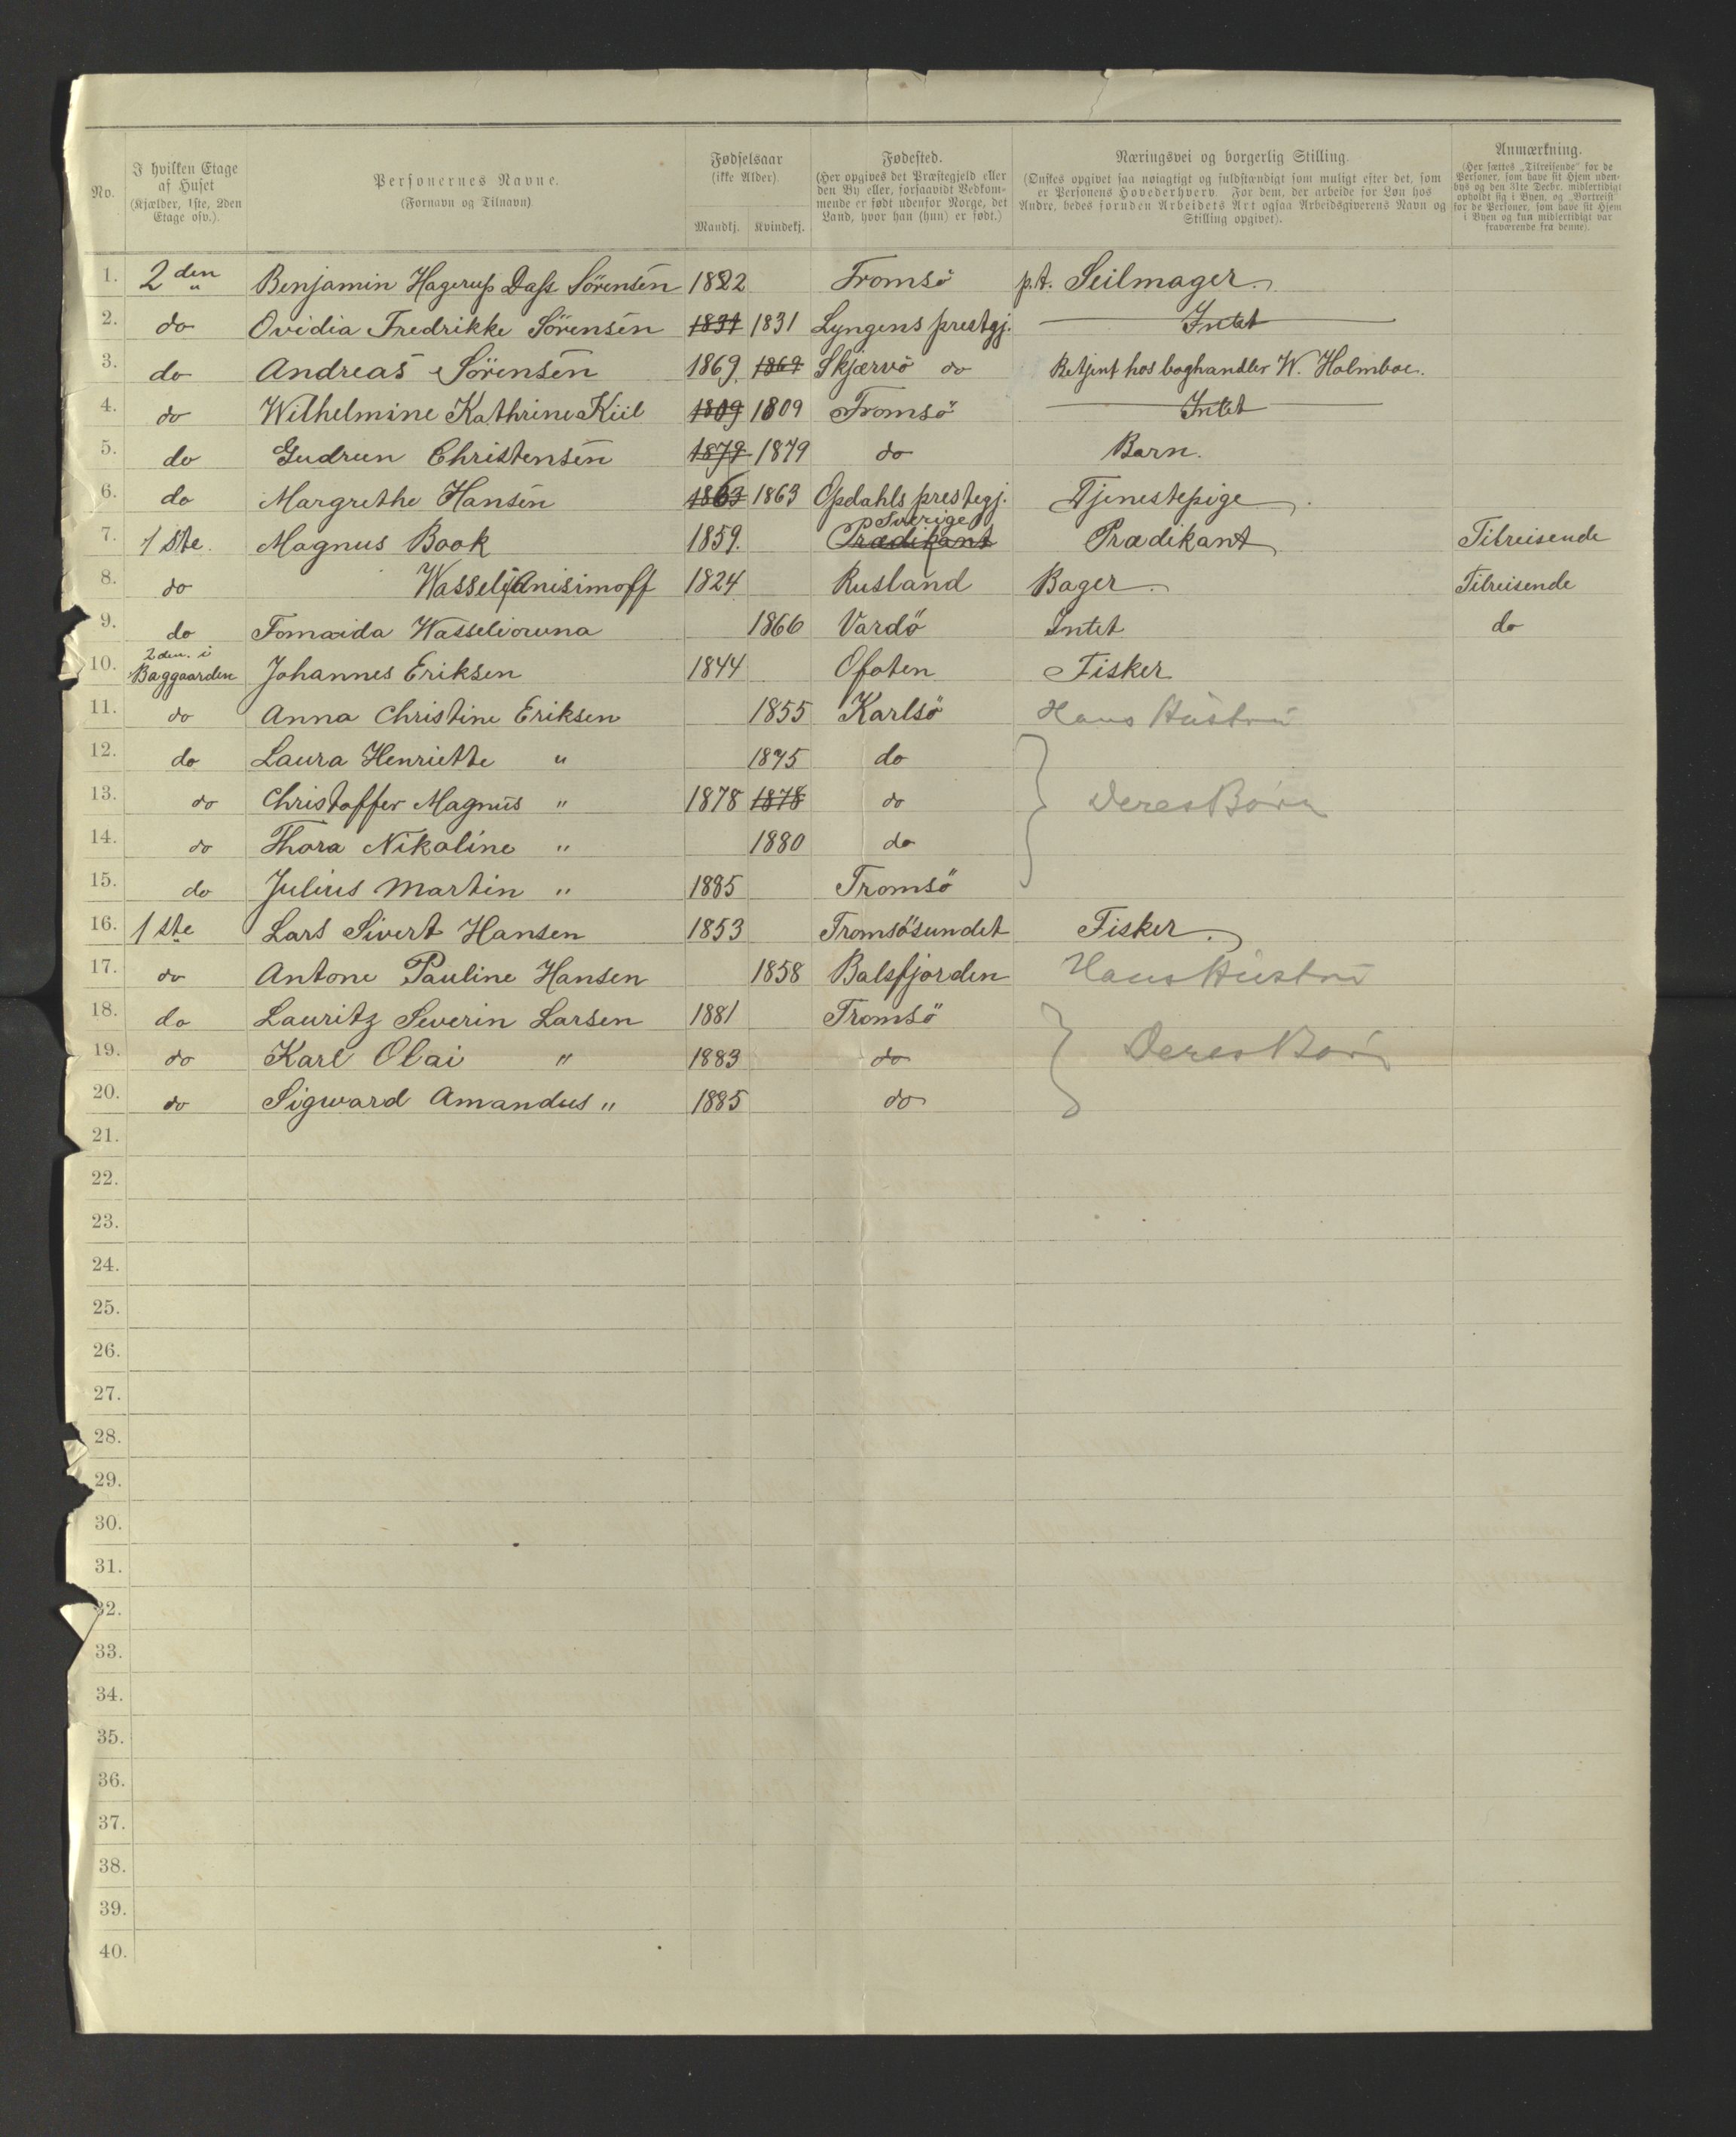 No.
I hvilken Etage
af Huset
(Kjælder, 1ste, 2den
Etage osv.).
Personernes Navne.
(Fornavn og Tilnavn)
Fødselsaar
(ikke Alder).
Mandkj. Kvindekj.
Fødested.
(Her opgives det Præstegjeld eller
den By eller, forsaavidt Vedkom-
mende er født udenfor Norge, det
Land, hvor han (hun) er født.)
Næringsvei og borgerlig Stilling.
(Ønskes opgivet saa nøiagtigt og fuldstændigt som muligt efter det, som
er Personens Hovederhverv. For dem, der arbeide for Løn hos
Andre, bedes foruden Arbeidets Art ogsaa Arbeidsgiverens Navn og
Stilling opgivet).
Anmærkning.
(Her sættes „Tilreisende" for de
Personer, som have sit Hjem uden-
bys og den 31te Decbr. midlertidigt
opholdt sig i Byen, og „Bortreist"
for de Personer, som have sit Hjem
i Byen og kun midlertidigt var
fraværende fra denne).
1. 2den Benjamin Hagerup Dass Sörensen 1822 Tromsö p.t. Seilmager.
2. do Ovidia Fredrikke Sörensen 1831 1831 Lyngens prestgj. Intet
3. do Andreas Sörensen 1869. 1869 Skjærvö do Betjent hos boghandler W. Holmboe.
4. do Wilhelmine Kathrine Kiil 1809 1809 Tromsö Intet
5. do Gudrun Christensen 1879 1879 do Barn.
6. do Margrethe Hansen 1863 1863 Opdahls prestegj. Tjenestepige
Sverige
7. 1ste. Magnus Book 1859. Prædikant Prædikant Tilreisende
8. do Wasselij Anisimoff 1824 Rusland Bager Tilreisende
9. do Fomaida Wasseliowna 1866 Vardö Intet do
2den. i
10. Baggaarden Johannes Eriksen 1844 Ofoten Fisker
11. do Anna Christine Eriksen 1855 Karlsö Hans Hustru
12. do Laura Henriette " 1875 do
13. do Christoffer Magnus " 1878 1878 do Deres Börn
14. do Thora Nikoline " 1880 do
15. do Julius Martin " 1885 Tromsö
16. 1ste Lars Sivert Hansen 1853 Tromsösundet Fisker.
17. do Antone Pauline Hansen 1858 Balsfjorden Hans Hustru
18. do Lauritz Severin Larsen 1881 Tromsö
19. do Karl Olai " 1883 do Deres Börn
20. do Sigward Amandus " 1885 do
21.
22.
23.
24.
25.
26.
27.
28.
29.
30.
31.
32.
33.
34.
35.
36.
37.
38.
39.
40.